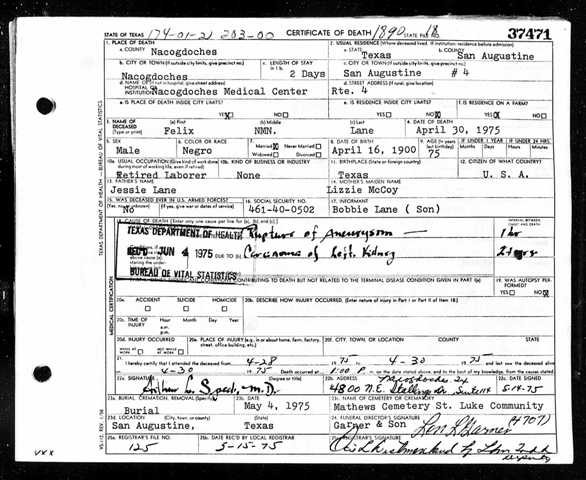 STATE OF TEXAS 174-01-21 203-00 CERTIFICATE OF DEATH 1890 STATE FILE NO. 18 37471
1. PLACE OF DEATH 2. USUAL RESIDENCE (Where deceased lived. If institution: residence before admission)
a. COUNTY Nacogdoches a. STATE Texas b. COUNTY San Augustine
b. CITY OR TOWN (If outside city limits, give precinct no.) Nacogdoches c. LENGTH OF STAY in 1b. 2 Days c. CITY OR TOWN (If outside city limits, give precinct no.) San Augustine # 4
d. NAME OF (If not in hospital, give street address) HOSPITAL OR INSTITUTION Nacogdoches Medical Center d. STREET ADDRESS (If rural, give location) Rte. 4
e. IS PLACE OF DEATH INSIDE CITY LIMITS? YES X NO e. IS RESIDENCE INSIDE CITY LIMITS? YES NO X f. IS RESIDENCE ON A FARM? YES NO
3. NAME OF DECEASED (Type or print) (a) First Felix (b) Middle NMN. (c) Last Lane 4. DATE OF DEATH April 30, 1975
5. SEX Male 6. COLOR OR RACE Negro 7. Married X Never Married Widowed Divorced 8. DATE OF BIRTH April 16, 1900 9. AGE (In years last birthday) 75 IF UNDER 1 YEAR Months Days IF UNDER 24 HRS. Hours Min.
10a. USUAL OCCUPATION (Give kind of work done during most of working life, even if retired) Retired Laborer 10b. KIND OF BUSINESS OR INDUSTRY None 11. BIRTHPLACE (State or foreign country) Texas 12. CITIZEN OF WHAT COUNTRY? U. S. A.
13. FATHER'S NAME Jessie Lane 14. MOTHER'S MAIDEN NAME Lizzie McCoy
15. WAS DECEASED EVER IN U.S. ARMED FORCES? (Yes, no, or unknown) No (If yes, give war or dates of service) 16. SOCIAL SECURITY NO. 461-40-0502 17. INFORMANT Bobbie Lane ( Son)
18. CAUSE OF DEATH (Enter only one cause per line for (a), (b), and (c).) INTERVAL BETWEEN ONSET AND DEATH
TEXAS DEPARTMENT OF HEALTH Rupture of Aneurysm 1 hr
REC'D JUN 4 1975 DUE TO (b) Carcinoma of Left Kidney
BUREAU OF VITAL STATISTICS
CONTRIBUTING TO DEATH BUT NOT RELATED TO THE TERMINAL DISEASE CONDITION GIVEN IN PART I(a) 19. WAS AUTOPSY PERFORMED? YES NO X
20a. ACCIDENT SUICIDE HOMICIDE 20b. DESCRIBE HOW INJURY OCCURRED. (Enter nature of injury in Part I or Part II of item 18.)
20c. TIME OF INJURY Hour Month Day Year a.m. p.m.
20d. INJURY OCCURRED WHILE AT WORK NOT WHILE AT WORK 20e. PLACE OF INJURY (e.g., in or about home, farm, factory, street, office building, etc.) 20f. CITY, TOWN, OR LOCATION COUNTY STATE
21. I hereby certify that I attended the deceased from 4-28 19 75 to 4-30 19 75 and last saw the deceased alive
on 4-30 19 75 Death occurred at 1:00 P m. on the date stated above, and to the best of my knowledge, from the causes stated.
22a. SIGNATURE M.D. (Degree or title) 22b. ADDRESS Nacogdoches Tx 4800 N.E. Stallings Dr. Suite 114 22c. DATE SIGNED 5-14-75
23a. BURIAL, CREMATION, REMOVAL (Specify) Burial 23b. DATE May 4, 1975 23c. NAME OF CEMETERY OR CREMATORY Mathews Cemetery St. Luke Community
23d. LOCATION (City, town, or county) San Augustine, (State) Texas 24. FUNERAL DIRECTOR'S SIGNATURE Garner & Son (4707)
25a. REGISTRAR'S FILE NO. 125 25b. DATE REC'D BY LOCAL REGISTRAR 5-15-75 25c. REGISTRAR'S SIGNATURE
TEXAS DEPARTMENT OF HEALTH — BUREAU OF VITAL STATISTICS
MEDICAL CERTIFICATION